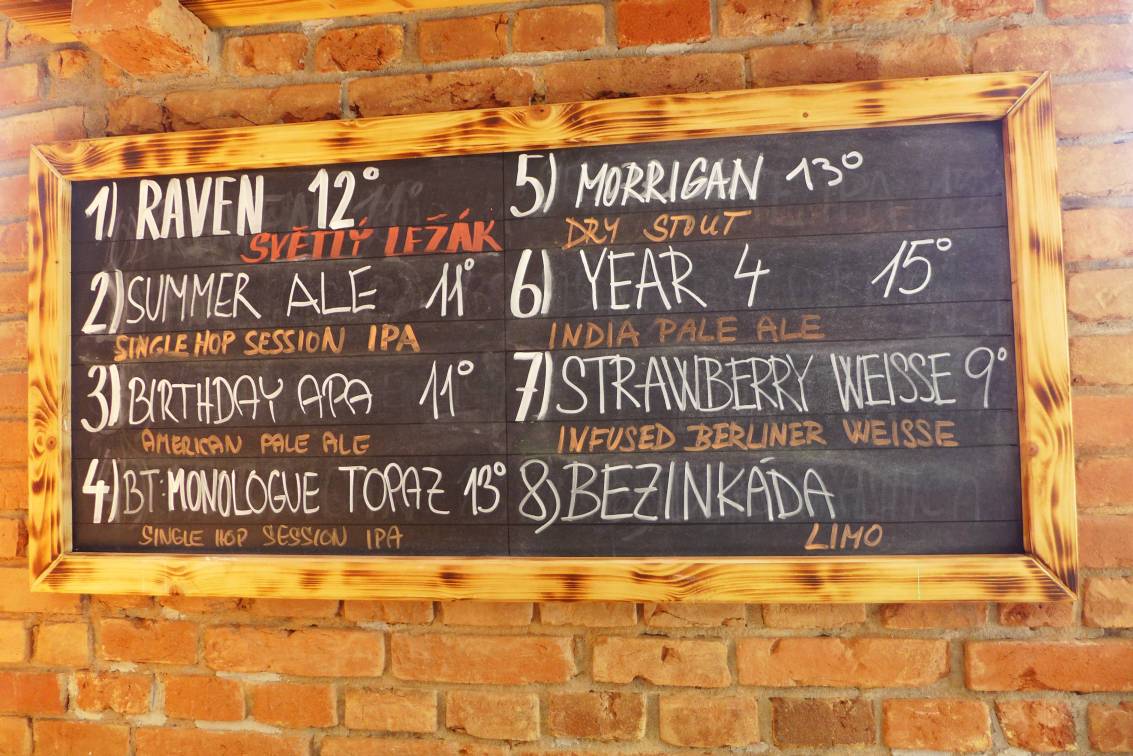 1) RAVEN 12°
SVĚTLÝ LEŽÁK
2) SUMMER ALE 11°
SINGLE HOP SESSION IPA
3) BIRTHDAY APA 11°
AMERICAN PALE ALE
4) BT: MONOLOGUE TOPAZ 13°
SINGLE HOP SESSION IPA
5) MORRIGAN 13°
DRY STOUT
6) YEAR 4 15°
INDIA PALE ALE
7) STRAWBERRY WEISSE 9°
INFUSED BERLINER WEISSE
8) BEZINKÁDA
LIMO